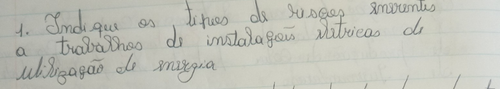 1. Indique os tipos de riscos inerentes
a trabalhos de instalações elétricas de
utilização de energia